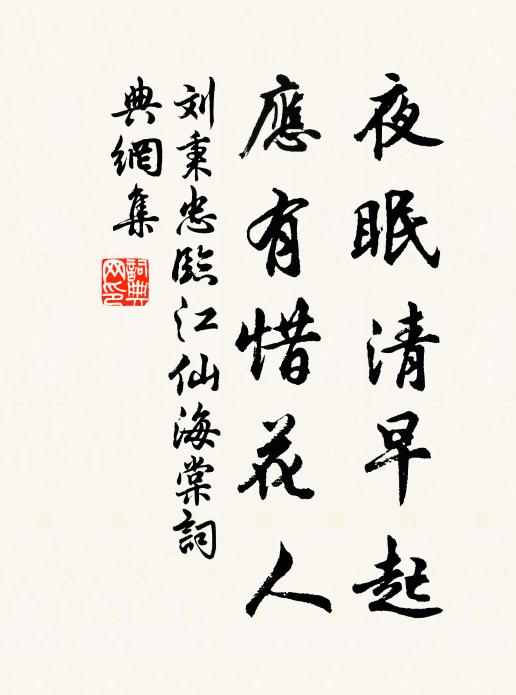 夜眠清早起
應有惜花人
刘秉忠臨江仙海棠詞
典網集
詞典
网印